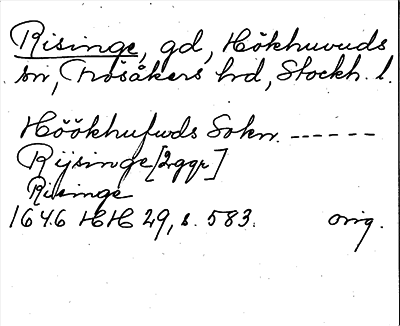 Risinge, gd, Hökhuvuds
sn, Frösåkers hd, Stockh. l.
Höökhufwds Sokn. ------
Rijsinge [2 ggr]
Risinge
1646 HH 29, s. 583. orig.